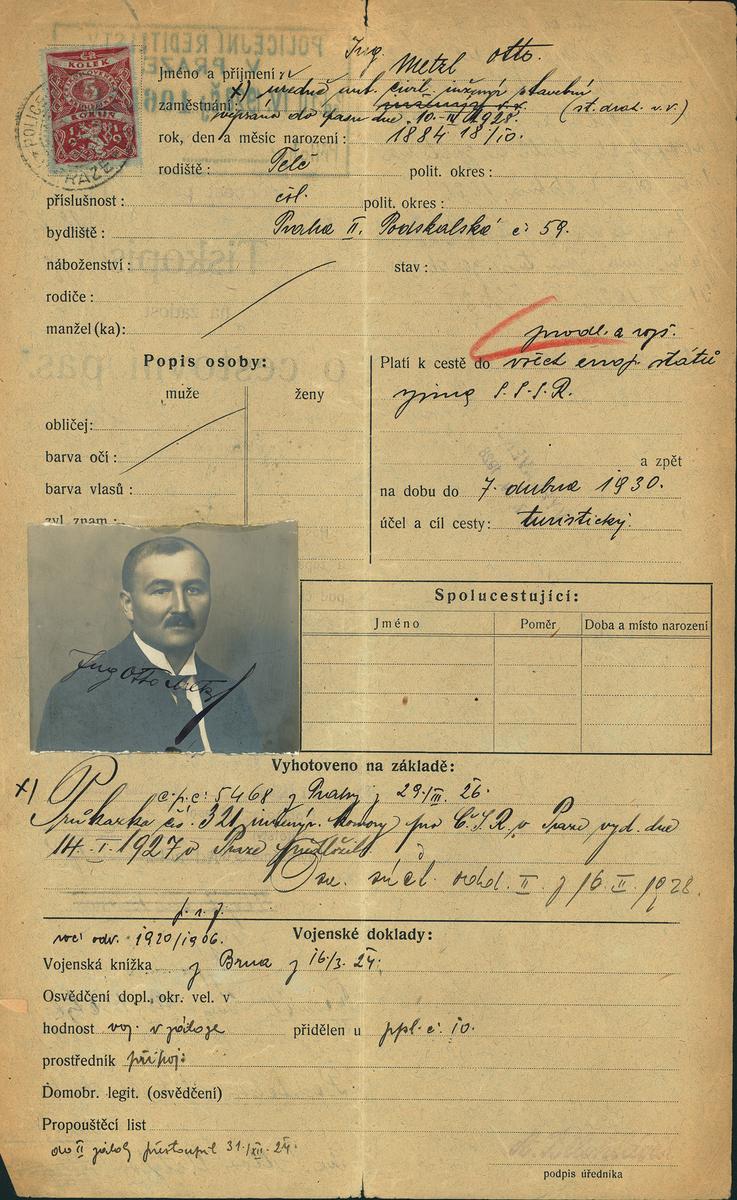 Č.S.R.
KOLEK
5
KORUN
POLICEJNÍ ŘEDITELSTVÍ
V PRAZE
Ing. Metzl Otto.
Jméno a příjmení:
x) úředně aut. civil. inženýr stavební
zaměstnání: (st. drah. v. v.)
10. IV. 1928.
rok, den a měsíc narození: 1884 18/10.
rodiště: Telč polit. okres:
příslušnost: čsl. polit. okres:
bydliště: Praha II. Podskalská č. 59.
náboženství: stav:
rodiče:
manžel (ka):
prodl. a rozš.
Popis osoby:
muže ženy
obličej:
barva očí:
barva vlasů:
zvl. znam.:
Platí k cestě do všech evrop. států
vyjma S.S.S.R.
a zpět
na dobu do 7. dubna 1930.
účel a cíl cesty: turistický.
Ing Otto Metzl
Spolucestující:
Jméno Poměr Doba a místo narození
Vyhotoveno na základě:
c.p.č. 5468 z Prahy z 29./III. 26.
x) Průkazka čís. 321 inženýr. komory pro Č.S.R. v Praze, vyd. dne
14. I. 1927 v Praze předložil.
odd. II. z 16. II. 1928.
roč. odv. 1920/1906.
Vojenské doklady:
Vojenská knížka z Brna z 16/3. 24.
Osvědčení dopl. okr. vel. v
hodnost voj. v záloze přidělen u ppl. č. 10.
prostředník
Domobr. legit. (osvědčení)
Propouštěcí list
do II zálohy přestoupil 31./XII. 24.
podpis úředníka